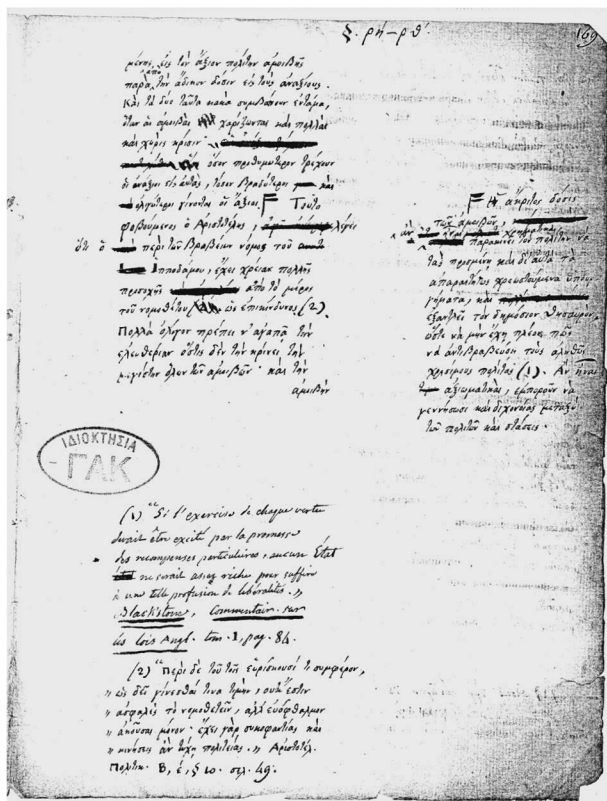 §. ρή-ρθ'.
169
μένης εἰς τὸν ἄξιον πολίτην ἀμοιβῆς
παρὰ τὴν ἄδικον δόσιν εἰς τοὺς ἀναξίους.
Καὶ τὰ δύο ταῦτα κακὰ συμβαίνουν ἐντάμα,
ὅταν αἱ ἀμοιβαὶ χαρίζωνται καὶ πολλαὶ
καὶ χωρὶς κρίσιν
ὅσον προθυμότερον τρέχουν
οἱ ἀνάξιοι εἰς αὐτὰς, τόσον βραδύτεροι καὶ
ὀλιγώτεροι γίνονται οἱ ἄξιοι. Τοῦτο
φοβούμενος ὁ Ἀριστοτέλης, λέγει
ὅτι ὁ περὶ τῶν βραβείων νόμος τοῦ
Ἱπποδάμου, ἔχει χρείαν πολλῆς
προσοχῆς ἀπὸ τὸ μέρος
τοῦ νομοθέτου, ὡς ἐπικίνδυνος. (2)
Πολλὰ ὀλίγον πρέπει ν' ἀγαπᾷ τὴν
ἐλευθερίαν ὅστις δὲν τὴν κρίνει τὴν
μεγίστην ὅλων τῶν ἀμοιβῶν· καὶ τὴν
ἀμοιβὴν
Ἡ ἄκριτος δόσις
τῶν ἀμοιβῶν,
παρακινεῖ τὸν πολίτην νὰ
τὰς προσμένῃ καὶ δι' αὐτὰ τὰ
ἀπαραιτήτως χρεωστούμενα ὑπουργήματα, καὶ
ἐξαντλεῖ τὸν δημόσιον θησαυρὸν,
ὥστε νὰ μὴν ἔχῃ πλέον πῶς
νὰ ἀντιβραβεύσῃ τοὺς ἀληθῶς
χρησίμους πολίτας (1). Ἂν ἦναι
ἀξιωματικαὶ, ἐμποροῦν νὰ
γεννήσωσι καὶ διχονοίας μεταξὺ
τῶν πολιτῶν καὶ στάσεις.
ΙΔΙΟΚΤΗΣΙΑ
ΓΑΚ
(1) "Si l'exercice de chaque vertu
devait être excité par la promesse
des recompenses particulieres, aucun État
ne serait assez riche pour suffire
à une telle profusion de libéralités."
Blackstone, Commentair. sur
les lois Angl. tom. 1, pag. 84.
(2) "Περὶ δὲ τοῦ τοῖς εὑρίσκουσί τι συμφέρον,
" ὡς δεῖ γίνεσθαί τινα τιμήν, οὐκ ἔστιν
" ἀσφαλὲς τὸ νομοθετεῖν, ἀλλ' εὐόφθαλμον
" ἀκοῦσαι μόνον· ἔχει γὰρ συκοφαντίας καὶ
" κινήσεις ἂν τύχῃ πολιτείας." Ἀριστοτέλ.
Πολιτικ. Β, έ, § 10. σελ. 49.